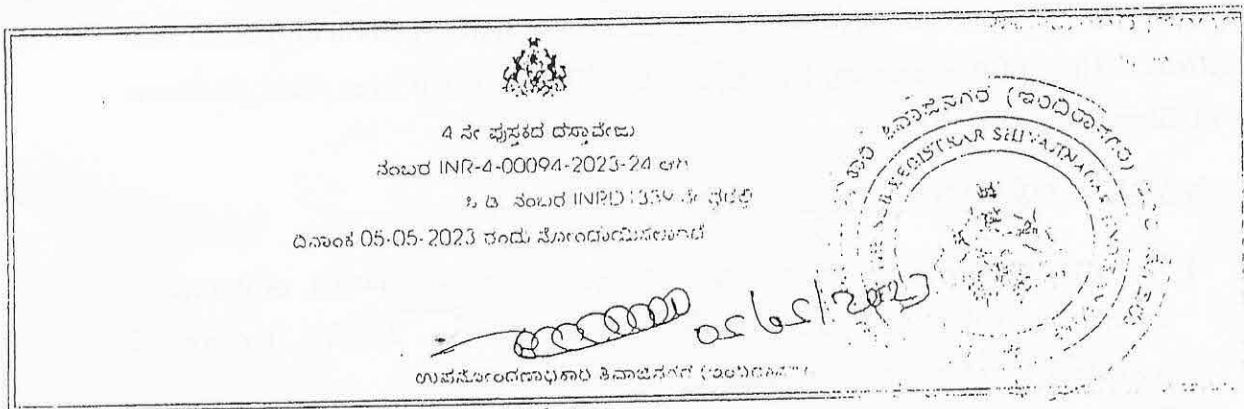 4 ನೇ ಪುಸ್ತಕದ ದಸ್ತಾವೇಜು
ನಂಬರ INR-4-00094-2023-24 ಆಗಿ
ಸಿ.ಡಿ. ನಂಬರ INRD1339 ನೇ ದ್ದರಲ್ಲಿ
ದಿನಾಂಕ 05-05-2023 ರಂದು ನೋಂದಾಯಿಸಲಾಗಿದೆ
ಉಪನೋಂದಣಾಧಿಕಾರಿ ಶಿವಾಜಿನಗರ (ಇಂದಿರಾನಗರ)
ಶಿವಾಜಿನಗರ (ಇಂದಿರಾನಗರ)
SUB REGISTRAR SHIVAJINAGAR